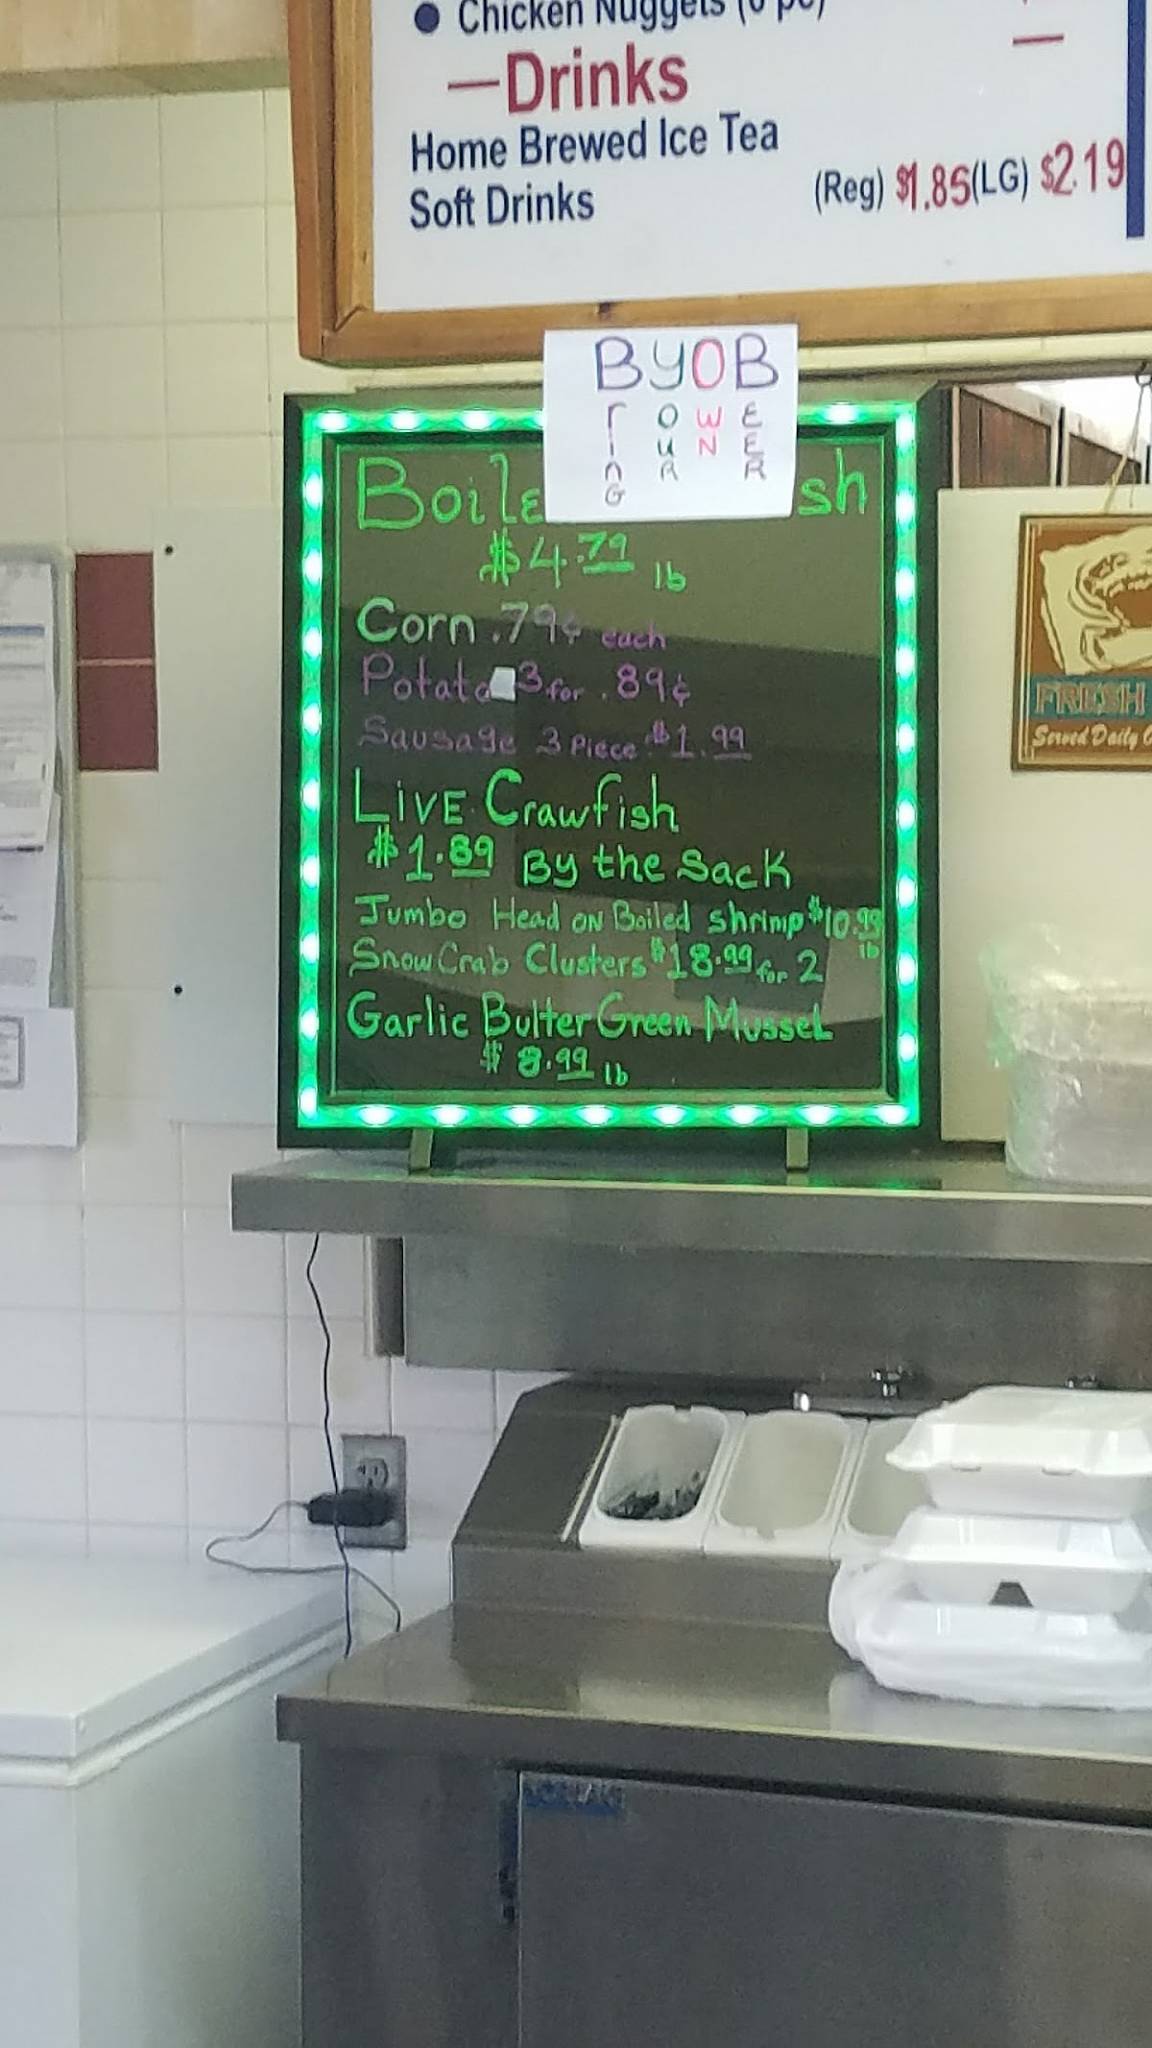 Chicken Nuggets (6 pc)
Drinks
Home Brewed Ice Tea
Soft Drinks (Reg) $1.85 (LG) $2.19
BYOB
BRING YOUR OWN BEER
Boile sh
$4.79 lb
Corn .79¢ each
Potato 3 for .89¢
Sausage 3 Piece $1.99
Live Crawfish
$1.89 By the Sack
Jumbo Head on Boiled shrimp $10.99 lb
Snow Crab Clusters $18.99 for 2
Garlic Butter Green Mussel
$8.99 lb
FRESH
Served Daily